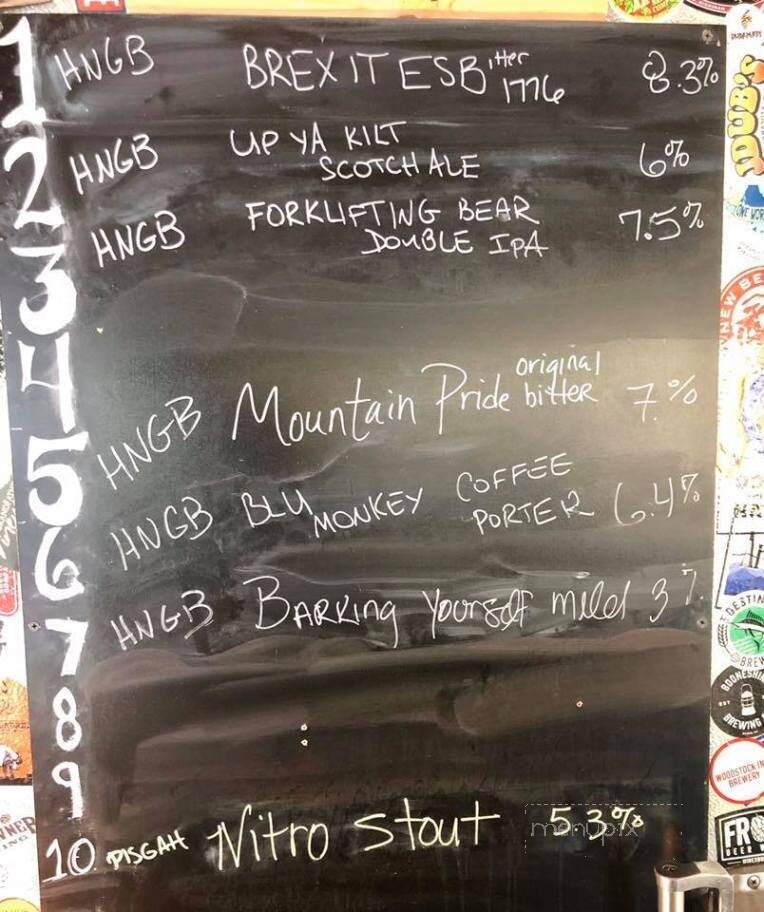 1 HNGB BREXIT ESBitter 1776 8.3%
2 HNGB UP YA KILT SCOTCH ALE 6%
3 HNGB FORKLIFTING BEAR DOUBLE IPA 7.5%
4
5 HNGB Mountain Pride original bitter 7.%
6 HNGB BLU MONKEY COFFEE PORTER 6.4%
7 HNGB BARKing Yourself mild 3%
8
9
10 PISGAH Nitro Stout 5.3%
menupix
DUB'S
NEW BE
DESTIN
BREW
BOONESHI
BREWING
WOODSTOCK IN
BREWERY
FRO
BEER